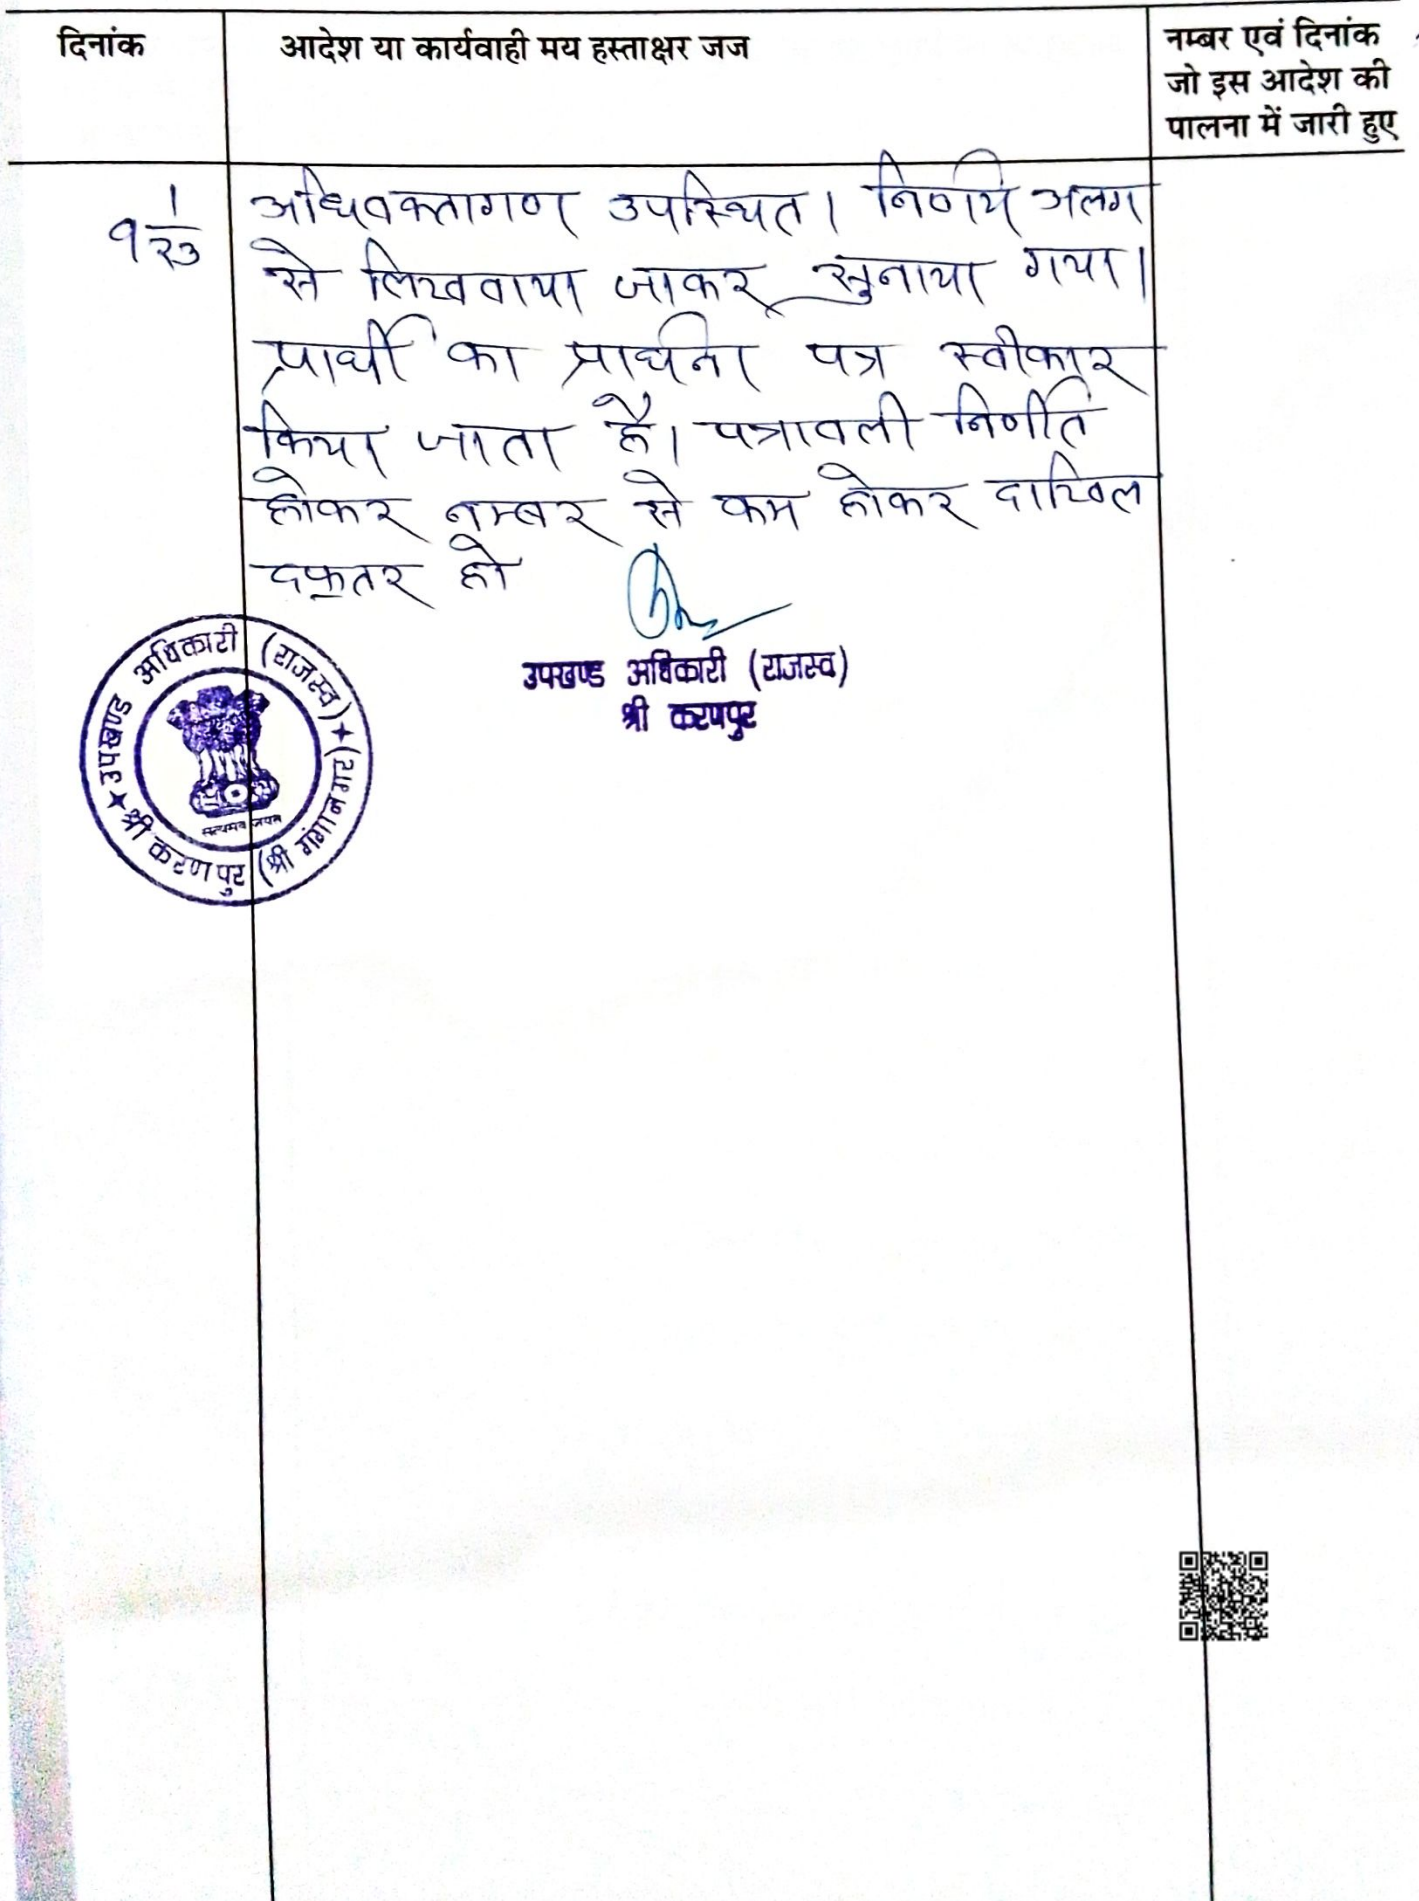 दिनांक
आदेश या कार्यवाही मय हस्ताक्षर जज
नम्बर एवं दिनांक
जो इस आदेश की
पालना में जारी हुए
१ 1/२३
अधिवक्तागण उपस्थित। निर्णय अलग
से लिखवाया जाकर सुनाया गया।
प्रार्थी का प्रार्थना पत्र स्वीकार
किया जाता है। पत्रावली निर्णीत
होकर नम्बर से कम होकर दाखिल
दफ्तर हो
उपखण्ड अधिकारी (राजस्व)
श्री करणपुर
उपखण्ड अधिकारी (राजस्व)
श्री करणपुर (श्री गंगानगर)
सत्यमेव जयते